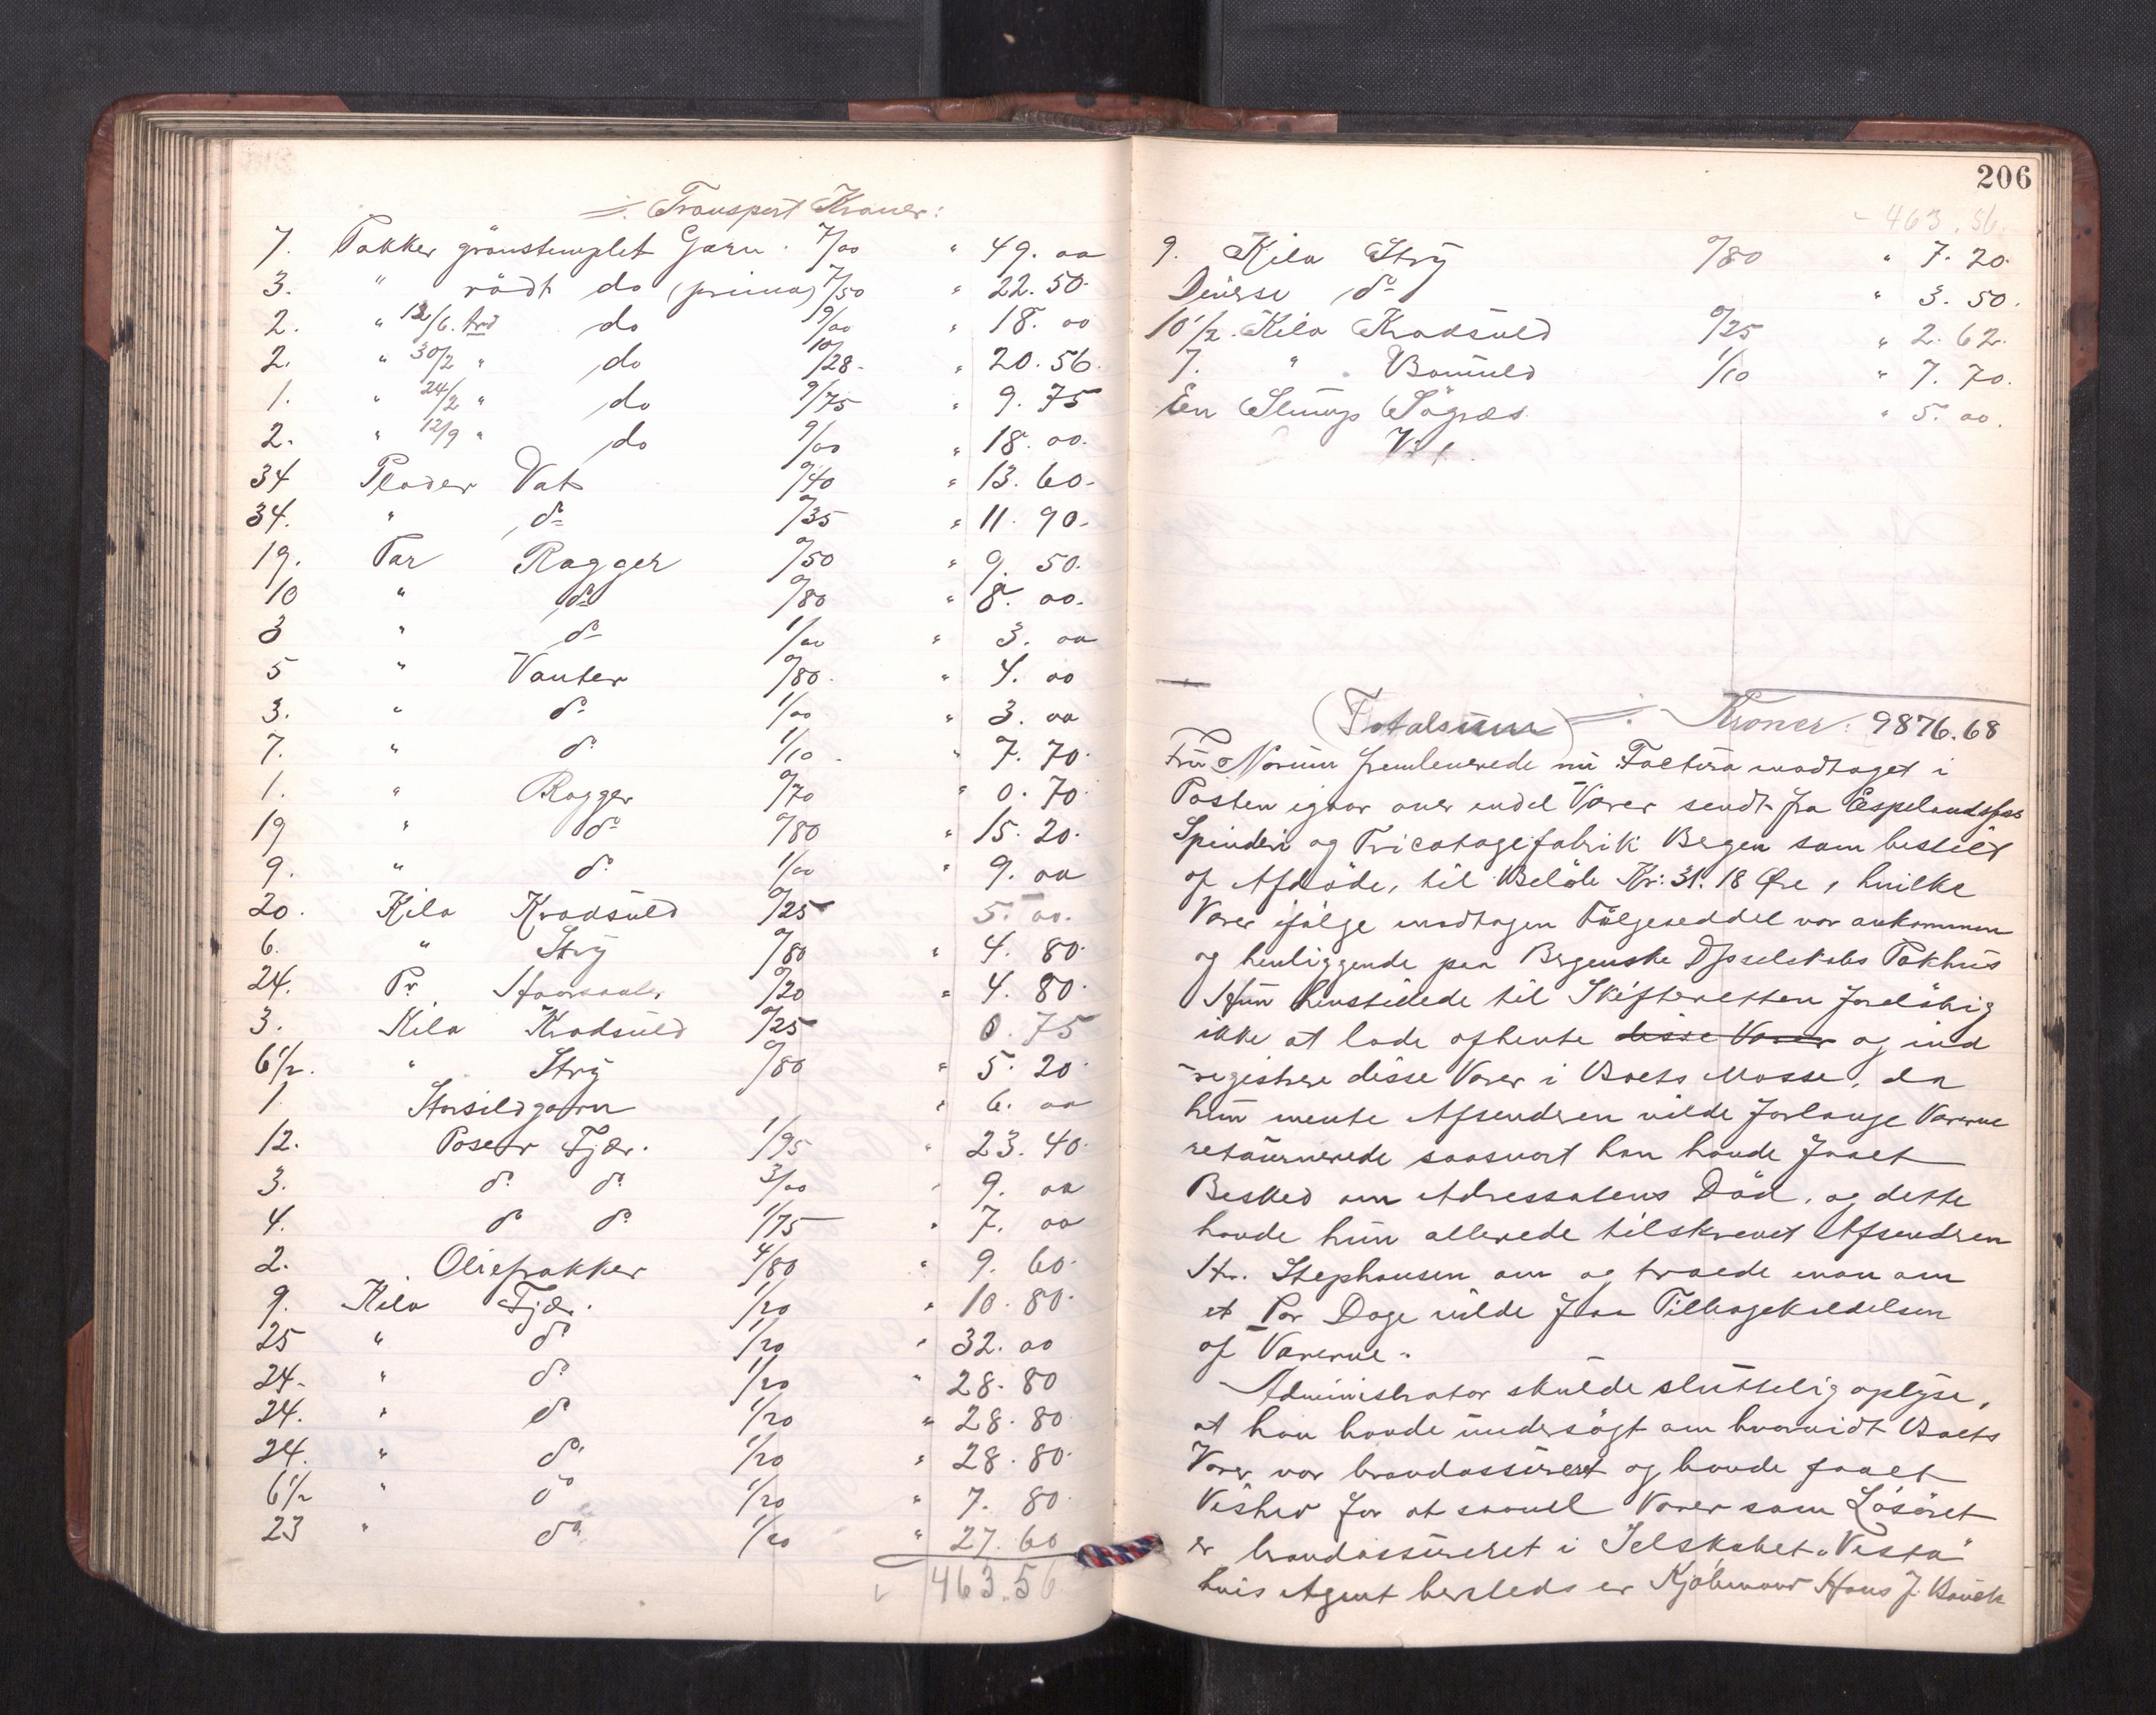 ÷. Transport Kroner:
7. Pakker grönstemplet Garn. 7/00 " 49. 00
3. " rödt do (prima) 7/50 " 22. 50.
2. " 12/6. trd do 9/00 " 18. 00
2. " 30/2 " do 10/28. " 20. 56.
1. " 24/2 " do 9/75 " 9. 75
2. " 12/9 " do 9/00 " 18. 00.
34 Plader Vat 0/40 " 13. 60.
34. " do 0/35 " 11. 90.
19. Par Ragger 0/50 " 9. 50.
10 " do 0/80 " 8. 00.
3 " do 1/00 " 3. 00
5 " Vanter 0/80. " 4. 00
3. " do 1/00 " 3. 00
7. " do 1/10. " 7. 70.
1. " Ragger 0/70 " 0. 70.
19 " do 0/80 " 15. 20.
9. " do 1/00 " 9. 00
20. Kilo Kradsuld 0/25 5. 00.
6. " Stry 0/80 " 4. 80.
24. Pr. Haarsaaler 0/20 " 4. 80.
3. Kilo Kradsuld 0/25 0. 75
6 1/2. " Stry 0/80 " 5. 20.
1 Storsildgarn " 6. 00
12. Poser Fjær. 1/95 " 23. 40.
3. do do 3/00 " 9. 00
4. do do 1/75 " 7. 00
2. Oliefrakker 4/80 " 9. 60.
9. Kilo Fjær. 1/20 " 10. 80.
25 " do 1/20 " 32. 00
24. " do 1/20 " 28. 80
24. " do 1/20 " 28. 80
24. " do 1/20 " 28. 80.
6 1/2 " do 1/20 " 7. 80.
23 " do 1/20 " 27. 60
463.56
206
463.56.
9. Kilo Stry 0/80 " 7. 20.
Diverse do " 3. 50.
10 1/2. Kilo Kradsuld 0/25 " 2. 62.
7. " Bomuld 1/10 " 7. 70.
En Slump Sögræs. " 5. 00.
(Totalsum) ÷. Kroner: 9876.68
Fru Norum fremleverede nu Factura modtaget i
Posten igaar over endel Varer sendt fra Espelandsfos
Spinderi og Tricotagefabrik Bergen som bestilt
af Afdöde, til Belöb Kr: 31. 18 Øre, hvilke
Varer ifölge modtagen Fölgeseddel var ankommen
og henliggende paa Bergenske Dsselskabs Pakhus
Hun henstillede til Skifteretten foreløbig
ikke at lade afhente disse Varer og ind
registrere disse Varer i Boets Masse, da
hun mente Afsenderen vilde forlange Varerne
retournerede saasnart han havde faaet
Besked om Adressatens Död, og dette
havde hun allerede tilskrevet Afsenderen
Hr. Stephansen om og troede man om
et Par Dage vilde faa Tilbagekaldelsen
af Varerne.
Administrator skulde sluttelig oplyse,
at han havde undersøgt om hvorvidt Boets
Varer var brandassureret og havde faaet
Vished for at saavel Varer som Lösöret
er brandassureret i Selskabet "Vesta"
hvis Agent hersteds er Kjøbmand Hans J. Banck